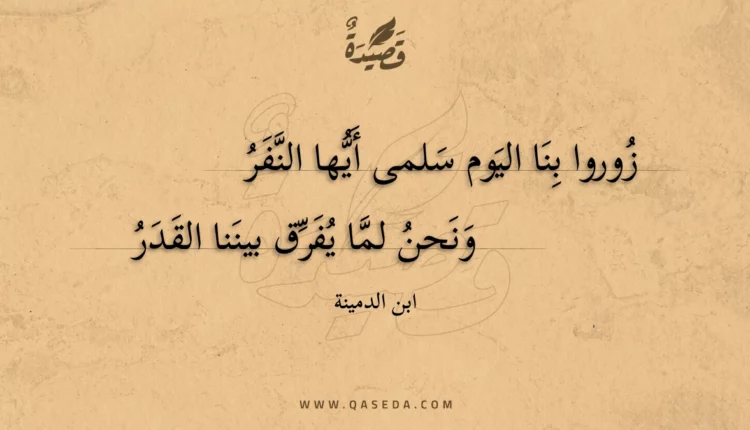 قَصِيدَةٌ
زُوروا بِنَا اليَوم سَلمى أَيُّها النَّفَرُ
وَنَحنُ لمَّا يُفَرِّق بينَنا القَدَرُ
ابن الدمينة
WWW.QASEDA.COM